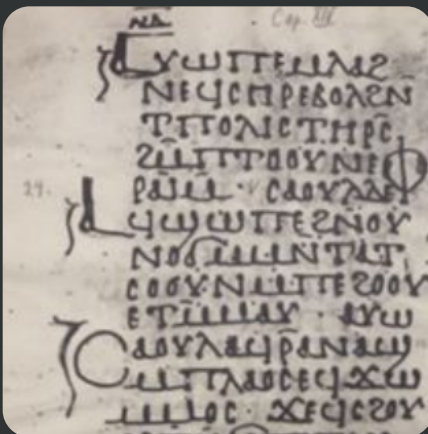 ⲛ̄ⲁ̄
Cap. XIV
ⲁⲩⲱⲡⲉⲙⲗⲁϩ
ⲛⲉϥⲥⲏⲣⲉⲃⲟⲗϩⲛ̄
ⲧⲡⲟⲗⲓⲥⲧⲏⲣⲥ̄
ϩⲙ̄ⲡⲧⲟⲟⲩⲛⲉⲫ
ⲣⲁⲓ̈ⲙ · ⲥⲁⲟⲩⲗⲇⲉ
24. ⲁϥϣⲱⲡⲉϩⲛⲟⲩ
ⲛⲟϭⲙ̄ⲙⲛ̄ⲧⲁⲧ
ⲥⲟⲟⲩⲛⲙ̄ⲡⲉϩⲟⲟⲩ
ⲉⲧⲙ̄ⲙⲁⲩ · ⲁⲩⲱ
ⲥⲁⲟⲩⲗⲁϥⲣ̄ⲁⲛⲁϣ
ⲙ̄ⲡⲗⲁⲟⲥⲉϥϫⲱ
ⲙ̄ⲙⲟⲥ · ϫⲉϥⲥϩⲟⲩ